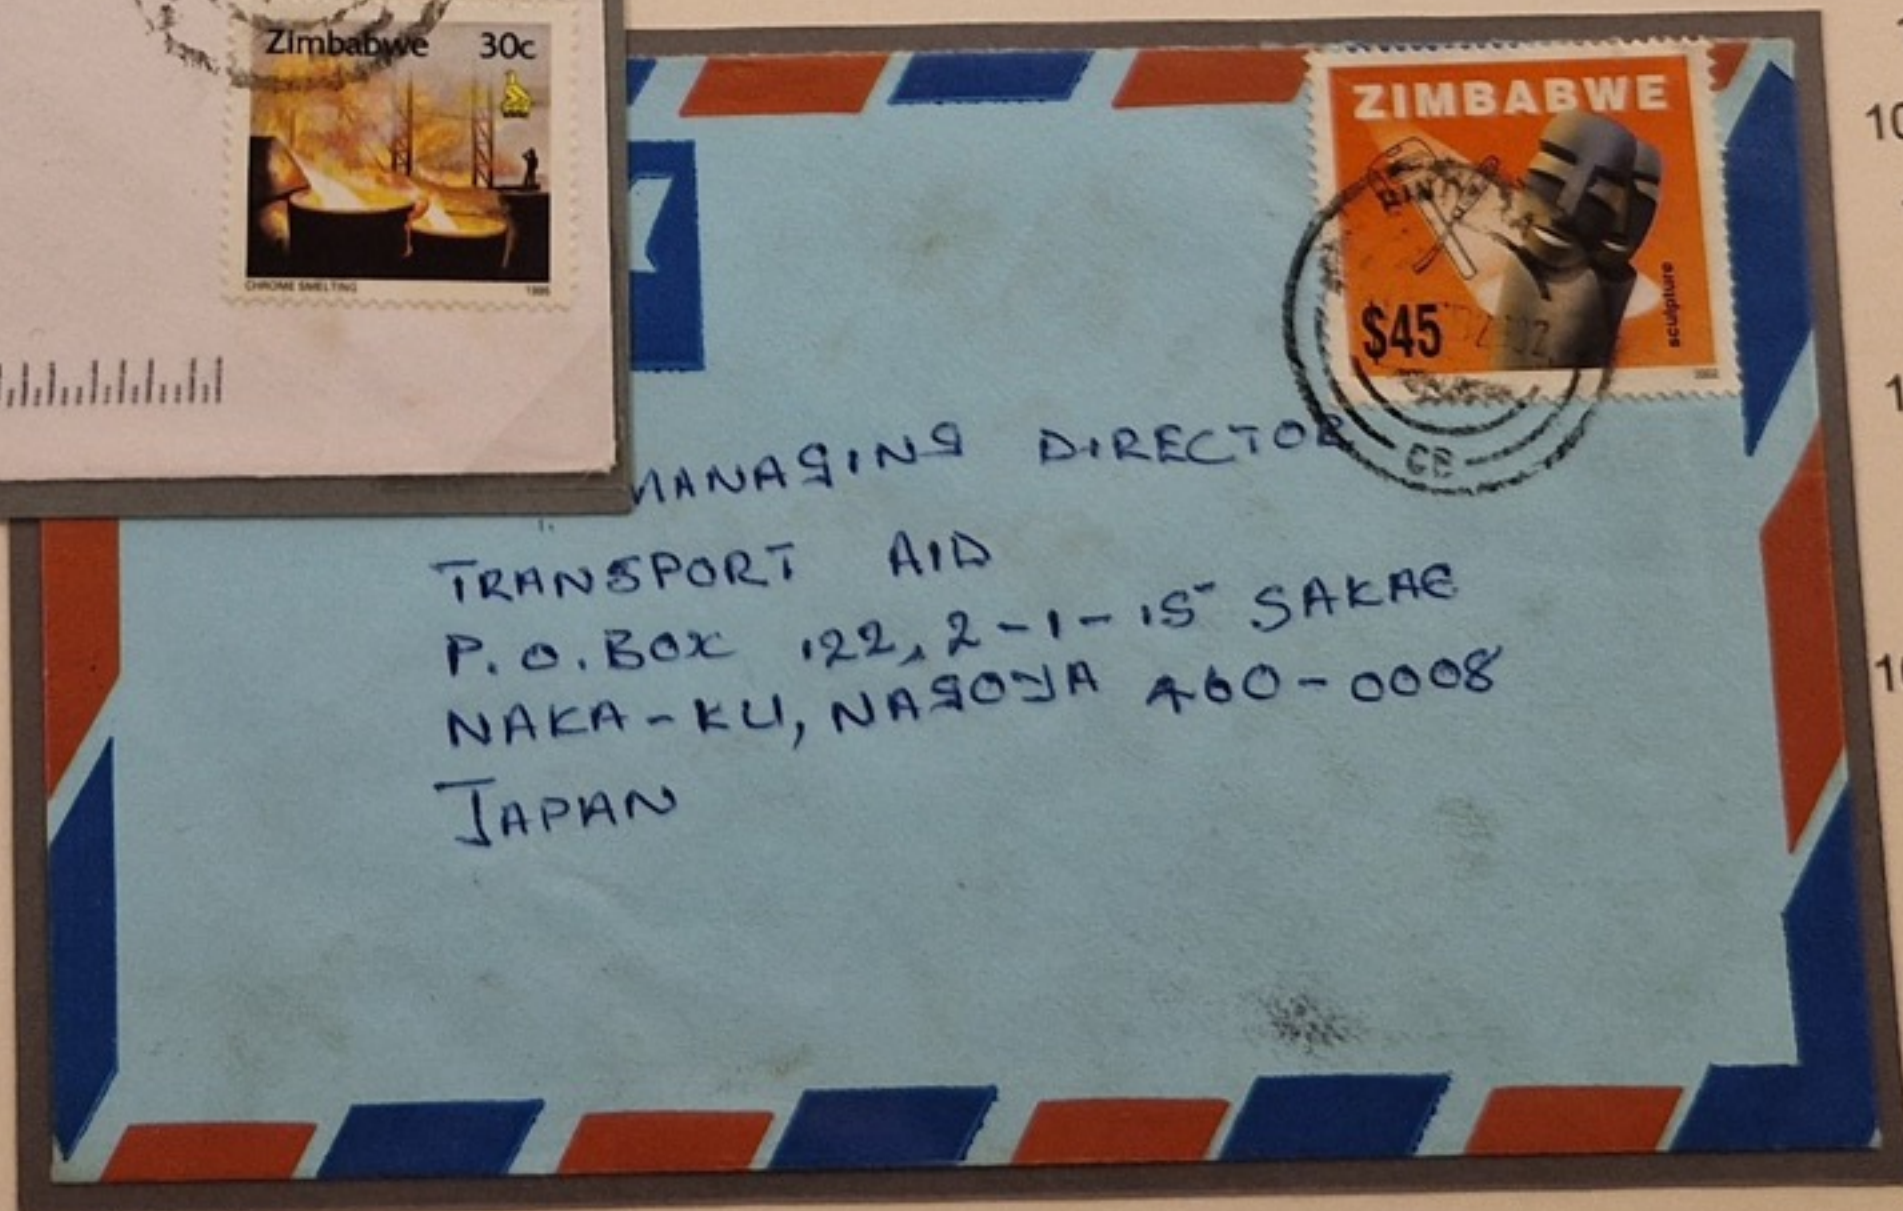 Zimbabwe 30c
CHROME SMELTING 1995
ZIMBABWE
$45
sculpture
MANAGING DIRECTOR
TRANSPORT AID
P.O. BOX 122, 2-1-15 SAKAE
NAKA-KU, NAGOYA 460-0008
JAPAN